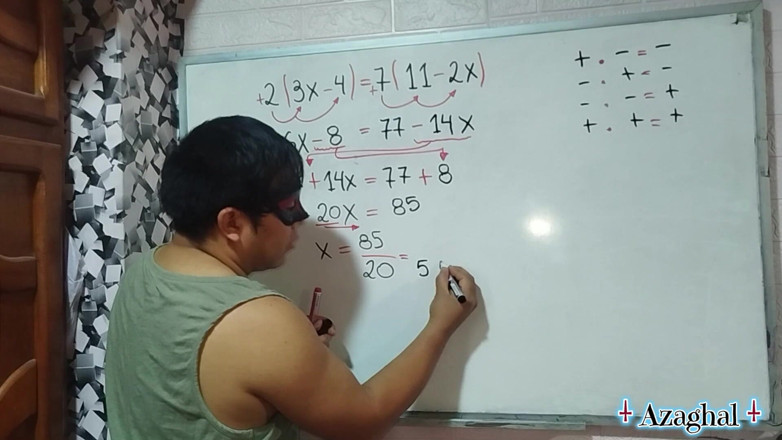 +2(3x-4)=+7(11-2x)
x-8 = 77-14x
+14x = 77 + 8
20x = 85
x = 85/20 = 5
+ . - = -
- . + = -
- . - = +
+ . + = +
Azaghal